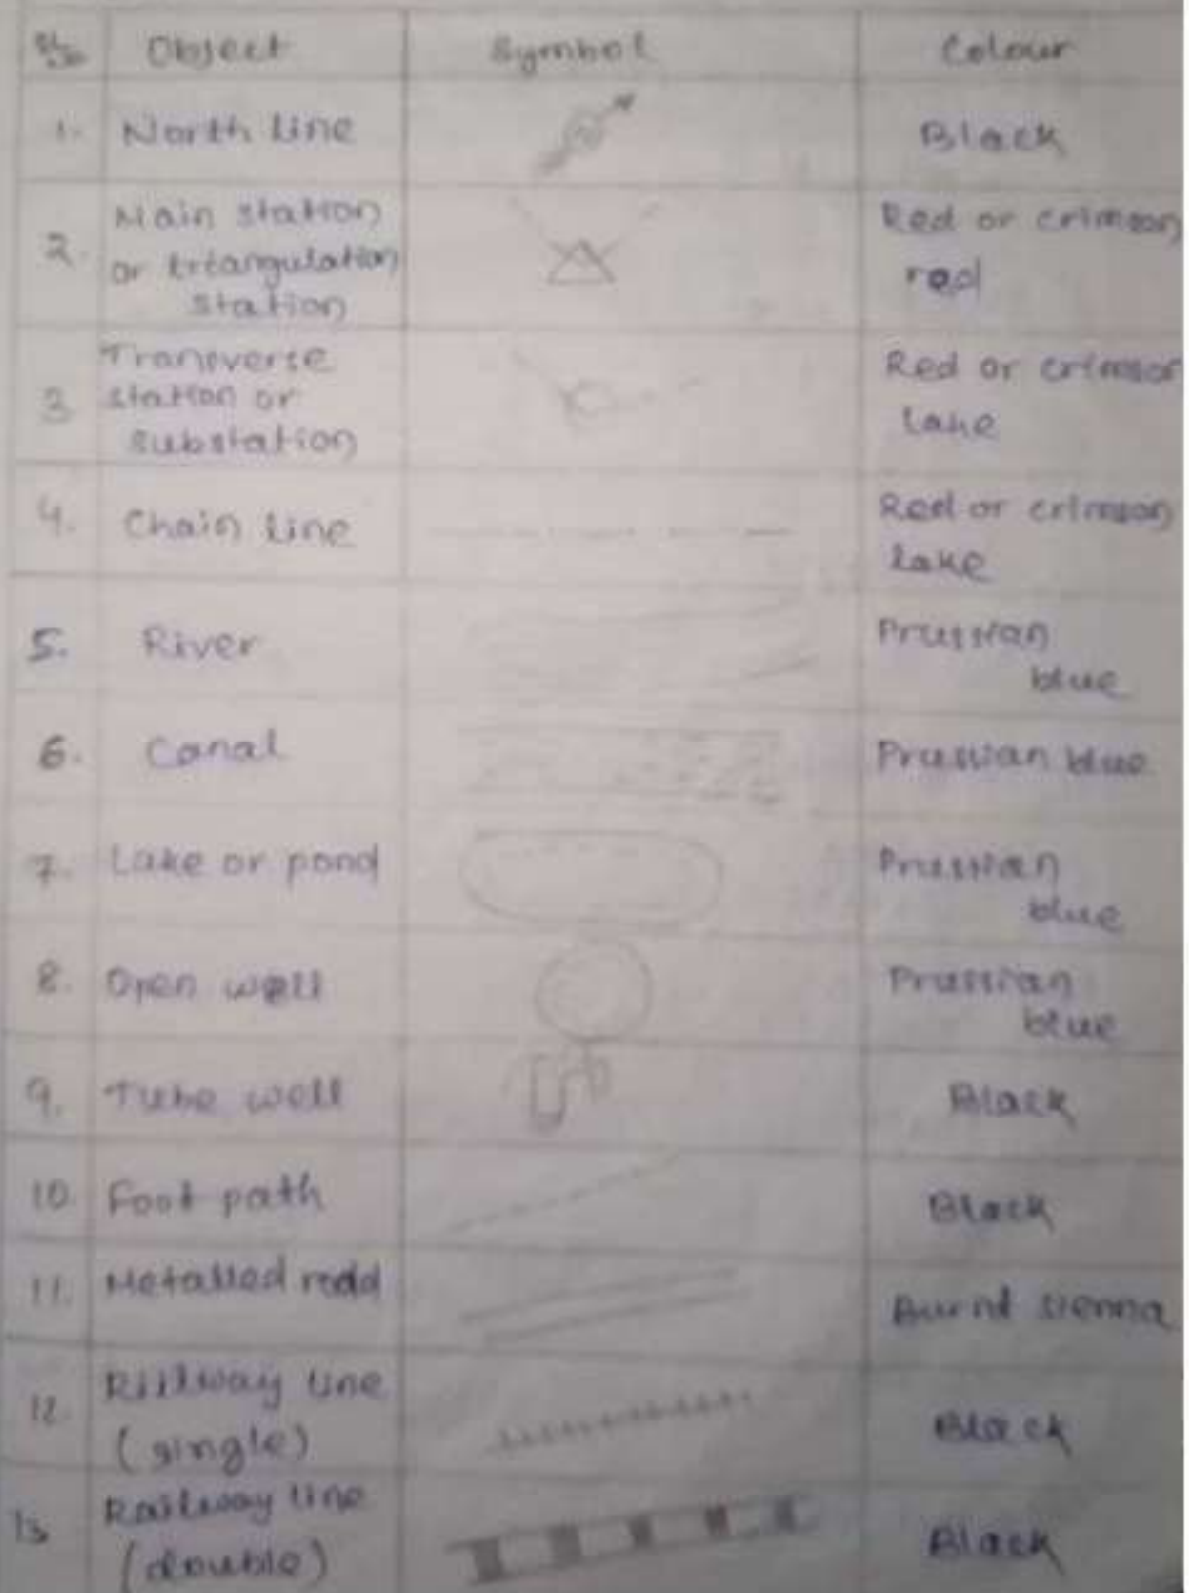 Sl. No Object Symbol Colour
1. North line Black
2. Main station
or triangulation
station
Red or crimson
red
3 Tranverse
station or
substation
Red or crimson
lake
4. Chain line
Red or crimson
lake
5. River
Prussian
blue
6. Canal Prussian blue
7. Lake or pond
Prussian
blue
8. Open well
Prussian
blue
9. Tube well Black
10. Foot path Black
11. Metalled road Burnt sienna
12. Railway line
(single)
Black
13 Railway line
(double)
Black